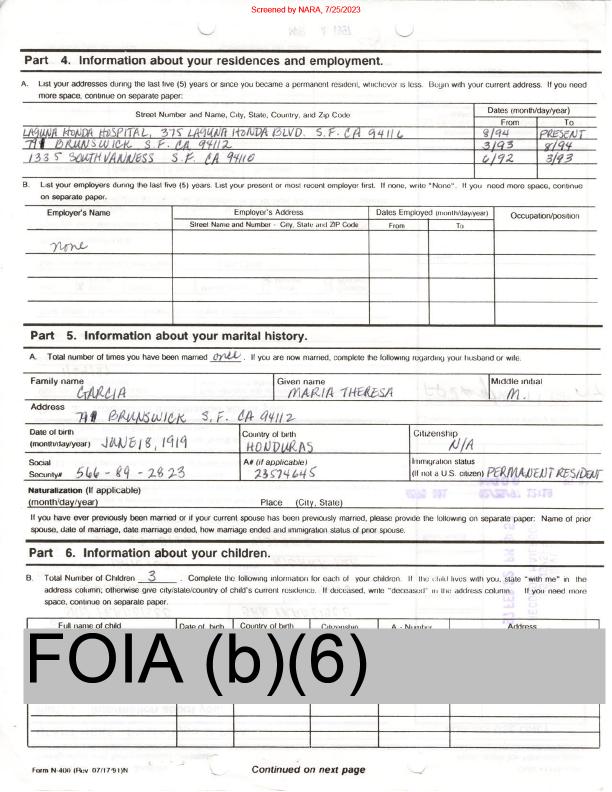 Screened by NARA, 7/25/2023
Part 4. Information about your residences and employment.
A. List your addresses during the last five (5) years or since you became a permanent resident, whichever is less. Begin with your current address. If you need
more space, continue on separate paper:
Street Number and Name, City, State, Country, and Zip Code
Dates (month/day/year)
From To
LAGUNA HONDA HOSPITAL, 375 LAGUNA HONDA BLVD. S.F. CA 94116 8/94 PRESENT
BRUNSWICK S.F. CA 94112 3/93 8/94
1335 SOUTH VANNESS S.F. CA 94110 6/92 3/93
B. List your employers during the last five (5) years. List your present or most recent employer first. If none, write "None". If you need more space, continue
on separate paper.
Employer's Name Employer's Address Dates Employed (month/day/year) Occupation/position
Street Name and Number - City, State and ZIP Code From To
none
Part 5. Information about your marital history.
A. Total number of times you have been married once. If you are now married, complete the following regarding your husband or wife.
Family name Given name Middle initial
GARCIA MARIA THERESA M.
Address
BRUNSWICK S.F. CA 94112
Date of birth Country of birth Citizenship
(month/day/year) JUNE 18, 1919 HONDURAS N/A
Social A# (if applicable) Immigration status
Security# 566-89-2823 23574645 (If not a U.S. citizen) PERMANENT RESIDENT
Naturalization (If applicable)
(month/day/year) Place (City, State)
If you have ever previously been married or if your current spouse has been previously married, please provide the following on separate paper: Name of prior
spouse, date of marriage, date marriage ended, how marriage ended and immigration status of prior spouse.
Part 6. Information about your children.
B. Total Number of Children 3 . Complete the following information for each of your children. If the child lives with you, state "with me" in the
address column; otherwise give city/state/country of child's current residence. If deceased, write "deceased" in the address column. If you need more
space, continue on separate paper.
Full name of child Date of birth Country of birth Citizenship A - Number Address
FOIA (b)(6)
Form N-400 (Rev 07/17/91)N Continued on next page